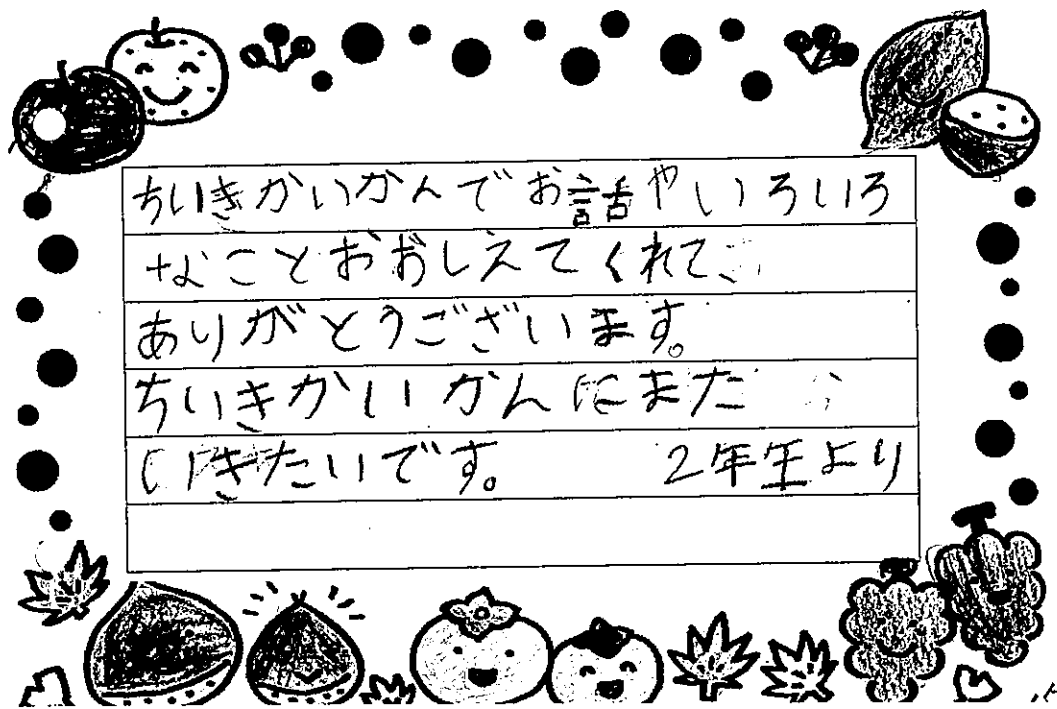 ちいきかいかんでお話やいろいろ
なことおおしえてくれて、
ありがとうございます。
ちいきかいかんにまた
いきたいです。 2年生より